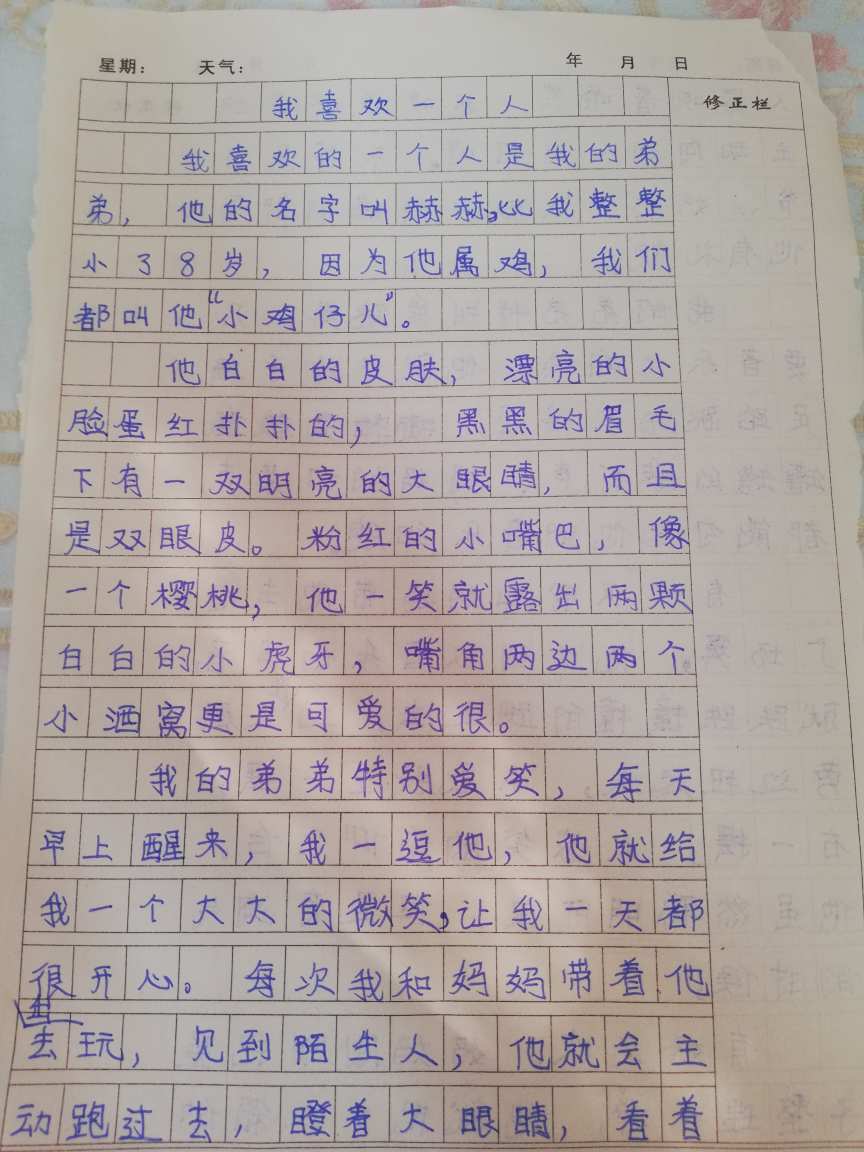 星期： 天气： 年 月 日
修正栏
我喜欢一个人
我喜欢的一个人是我的弟
弟，他的名字叫赫赫，比我整整
小38岁，因为他属鸡，我们
都叫他“小鸡仔儿”。
他白白的皮肤，漂亮的小
脸蛋红扑扑的，黑黑的眉毛
下有一双明亮的大眼睛，而且
是双眼皮。粉红的小嘴巴，像
一个樱桃，他一笑就露出两颗
白白的小虎牙，嘴角两边两个
小酒窝更是可爱的很。
我的弟弟特别爱笑，每天
早上醒来，我一逗他，他就给
我一个大大的微笑，让我一天都
很开心。每次我和妈妈带着他
出去玩，见到陌生人，他就会主
动跑过去，瞪着大眼睛，看着